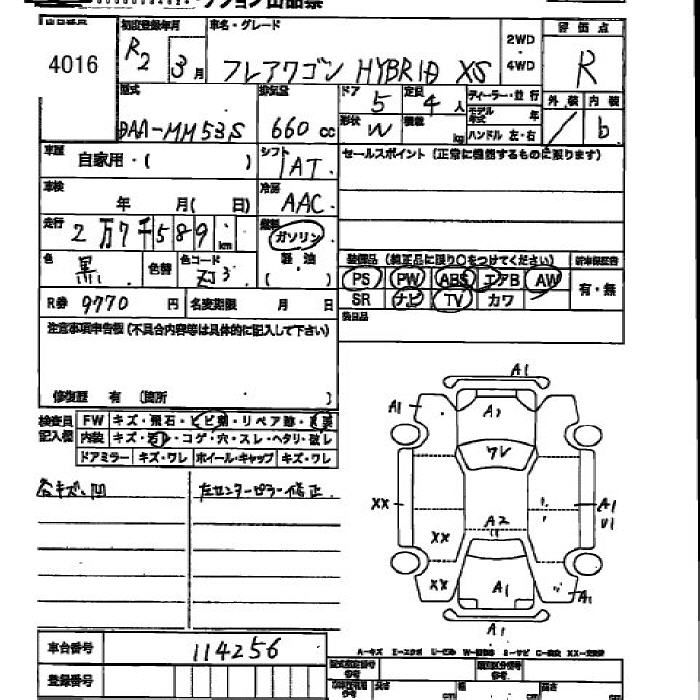 オークション出品票
出品番号 初度登録年月 車名・グレード 2WD・4WD 評価点
4016 R2 3月 フレアワゴン HYBRID XS R
型式 排気量 ドア 5 定員 4人 ディーラー・並行 外装 内装
DAA-MM53S 660cc 形状 W 積載 kg モデル年式 年 ハンドル 左・右 / b
車歴 自家用・( ) シフト IAT セールスポイント (正常に機能するものに限ります)
車検 年 月( 日) 冷房 AAC
走行 2万7千589km 燃料 ガソリン
軽油
( )
色 黒 色替 色コード ZJ3
装備品 (純正品に限り○をつけてください) 新車保証書
PS PW ABS エアB AW 有・無
SR ナビ TV カワ
R券 9770円 名変期限 月 日
注意事項申告欄 (不具合内容等は具体的に記入して下さい)
修復歴 有 (箇所 )
検査員記入欄 FW キズ・飛石・ヒビ割・リペア跡・
内装 キズ・・コゲ・穴・スレ・ヘタリ・破レ
ドアミラー キズ・ワレ ホイール・キャップ キズ・ワレ
各キズ、凹 左センターピラー修正
A1
A1 A2
ワレ
XX A1
U1
A2
XX
XX A1 A1
A1
A-キズ E-エクボ U-ヘコミ W-補修跡 S-サビ C-腐食 XX-交換済
車台番号 114256
登録番号
型式指定番号 類別区分番号
長さ 幅 高さ